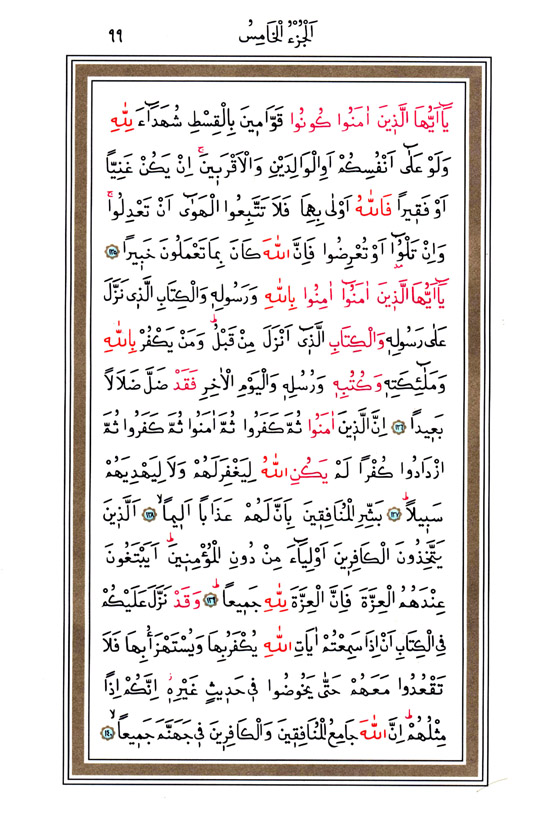 اَلْجُزْءُ الْخَامِسُ ٩٩
يَٓا اَيُّهَا الَّذ۪ينَ اٰمَنُوا كُونُوا قَوَّام۪ينَ بِالْقِسْطِ شُهَدَٓاءَ لِلّٰهِ
وَلَوْ عَلٰٓى اَنْفُسِكُمْ اَوِ الْوَالِدَيْنِ وَالْاَقْرَب۪ينَۚ اِنْ يَكُنْ غَنِيًّا
اَوْ فَق۪يراً فَاللّٰهُ اَوْلٰى بِهِمَا فَلَا تَتَّبِعُوا الْهَوٰٓى اَنْ تَعْدِلُواۚ
وَاِنْ تَلْوُٓ۫ا اَوْ تُعْرِضُوا فَاِنَّ اللّٰهَ كَانَ بِمَا تَعْمَلُونَ خَب۪يراً ﴿١٣٥﴾
يَٓا اَيُّهَا الَّذ۪ينَ اٰمَنُٓوا اٰمِنُوا بِاللّٰهِ وَرَسُولِه۪ وَالْكِتَابِ الَّذ۪ي نَزَّلَ
عَلٰى رَسُولِه۪ وَالْكِتَابِ الَّذ۪ٓي اَنْزَلَ مِنْ قَبْلُۜ وَمَنْ يَكْفُرْ بِاللّٰهِ
وَمَلٰٓئِكَتِه۪ وَكُتُبِه۪ وَرُسُلِه۪ وَالْيَوْمِ الْاٰخِرِ فَقَدْ ضَلَّ ضَلَالاً
بَع۪يداً ﴿١٣٦﴾ اِنَّ الَّذ۪ينَ اٰمَنُوا ثُمَّ كَفَرُوا ثُمَّ اٰمَنُوا ثُمَّ كَفَرُوا ثُمَّ
ازْدَادُوا كُفْراً لَمْ يَكُنِ اللّٰهُ لِيَغْفِرَ لَهُمْ وَلَا لِيَهْدِيَهُمْ
سَب۪يلاًۜ ﴿١٣٧﴾ بَشِّرِ الْمُنَافِق۪ينَ بِاَنَّ لَهُمْ عَذَاباً اَل۪يماًۙ ﴿١٣٨﴾ اَلَّذ۪ينَ
يَتَّخِذُونَ الْكَافِر۪ينَ اَوْلِيَٓاءَ مِنْ دُونِ الْمُؤْمِن۪ينَۜ اَيَبْتَغُونَ
عِنْدَهُمُ الْعِزَّةَ فَاِنَّ الْعِزَّةَ لِلّٰهِ جَم۪يعاًۜ ﴿١٣٩﴾ وَقَدْ نَزَّلَ عَلَيْكُمْ
فِي الْكِتَابِ اَنْ اِذَا سَمِعْتُمْ اٰيَاتِ اللّٰهِ يُكْفَرُ بِهَا وَيُسْتَهْزَاُ بِهَا فَلَا
تَقْعُدُوا مَعَهُمْ حَتّٰى يَخُوضُوا ف۪ي حَد۪يثٍ غَيْرِه۪ۘ اِنَّكُمْ اِذاً
مِثْلُهُمْۜ اِنَّ اللّٰهَ جَامِعُ الْمُنَافِق۪ينَ وَالْكَافِر۪ينَ ف۪ي جَهَنَّمَ جَم۪يعاًۙ ﴿١٤٠﴾